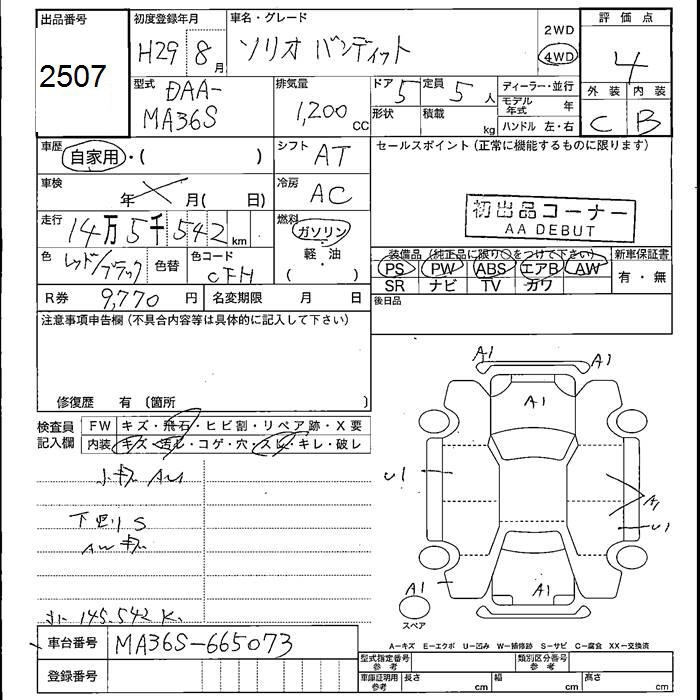 出品番号
2507
初度登録年月
H29 8月
車名・グレード
ソリオ バンディット
2WD
4WD
評価点
4
外装 内装
C B
型式
DAA-
MA36S
排気量
1,200 cc
ドア 5 定員 5 人
形状 積載 kg
ディーラー・並行
モデル年式 年
ハンドル 左・右
車歴 自家用・( )
シフト AT
セールスポイント (正常に機能するものに限ります)
初出品コーナー
AA DEBUT
車検 年 月( 日)
冷房 AC
走行 14万5千542 km
燃料 ガソリン
軽・油
( )
色 レッド/ブラック 色替 色コード CFH
装備品 (純正品に限り○をつけて下さい) 新車保証書
PS PW ABS エアB AW 有・無
SR ナビ TV カワ
R券 9,770 円 名変期限 月 日
後日品
注意事項申告欄 (不具合内容等は具体的に記入して下さい)
修復歴 有 〔箇所 〕
検査員記入欄
FW キズ・飛石・ヒビ割・リペア跡・X要
内装 キズ・汚レ・コゲ・穴・スレ・キレ・破レ
小キズ AW
下回り S
AW キズ
145,542 K
A1
A1
A1
U1
A1
U1
A1
A1
スペア
A−キズ E−エクボ U−凹み W−補修跡 S−サビ C−腐食 XX−交換済
車台番号 MA36S-665073
登録番号
型式指定番号 参考 類別区分番号 参考
車庫証明用 参考 長さ cm 幅 cm 高さ cm